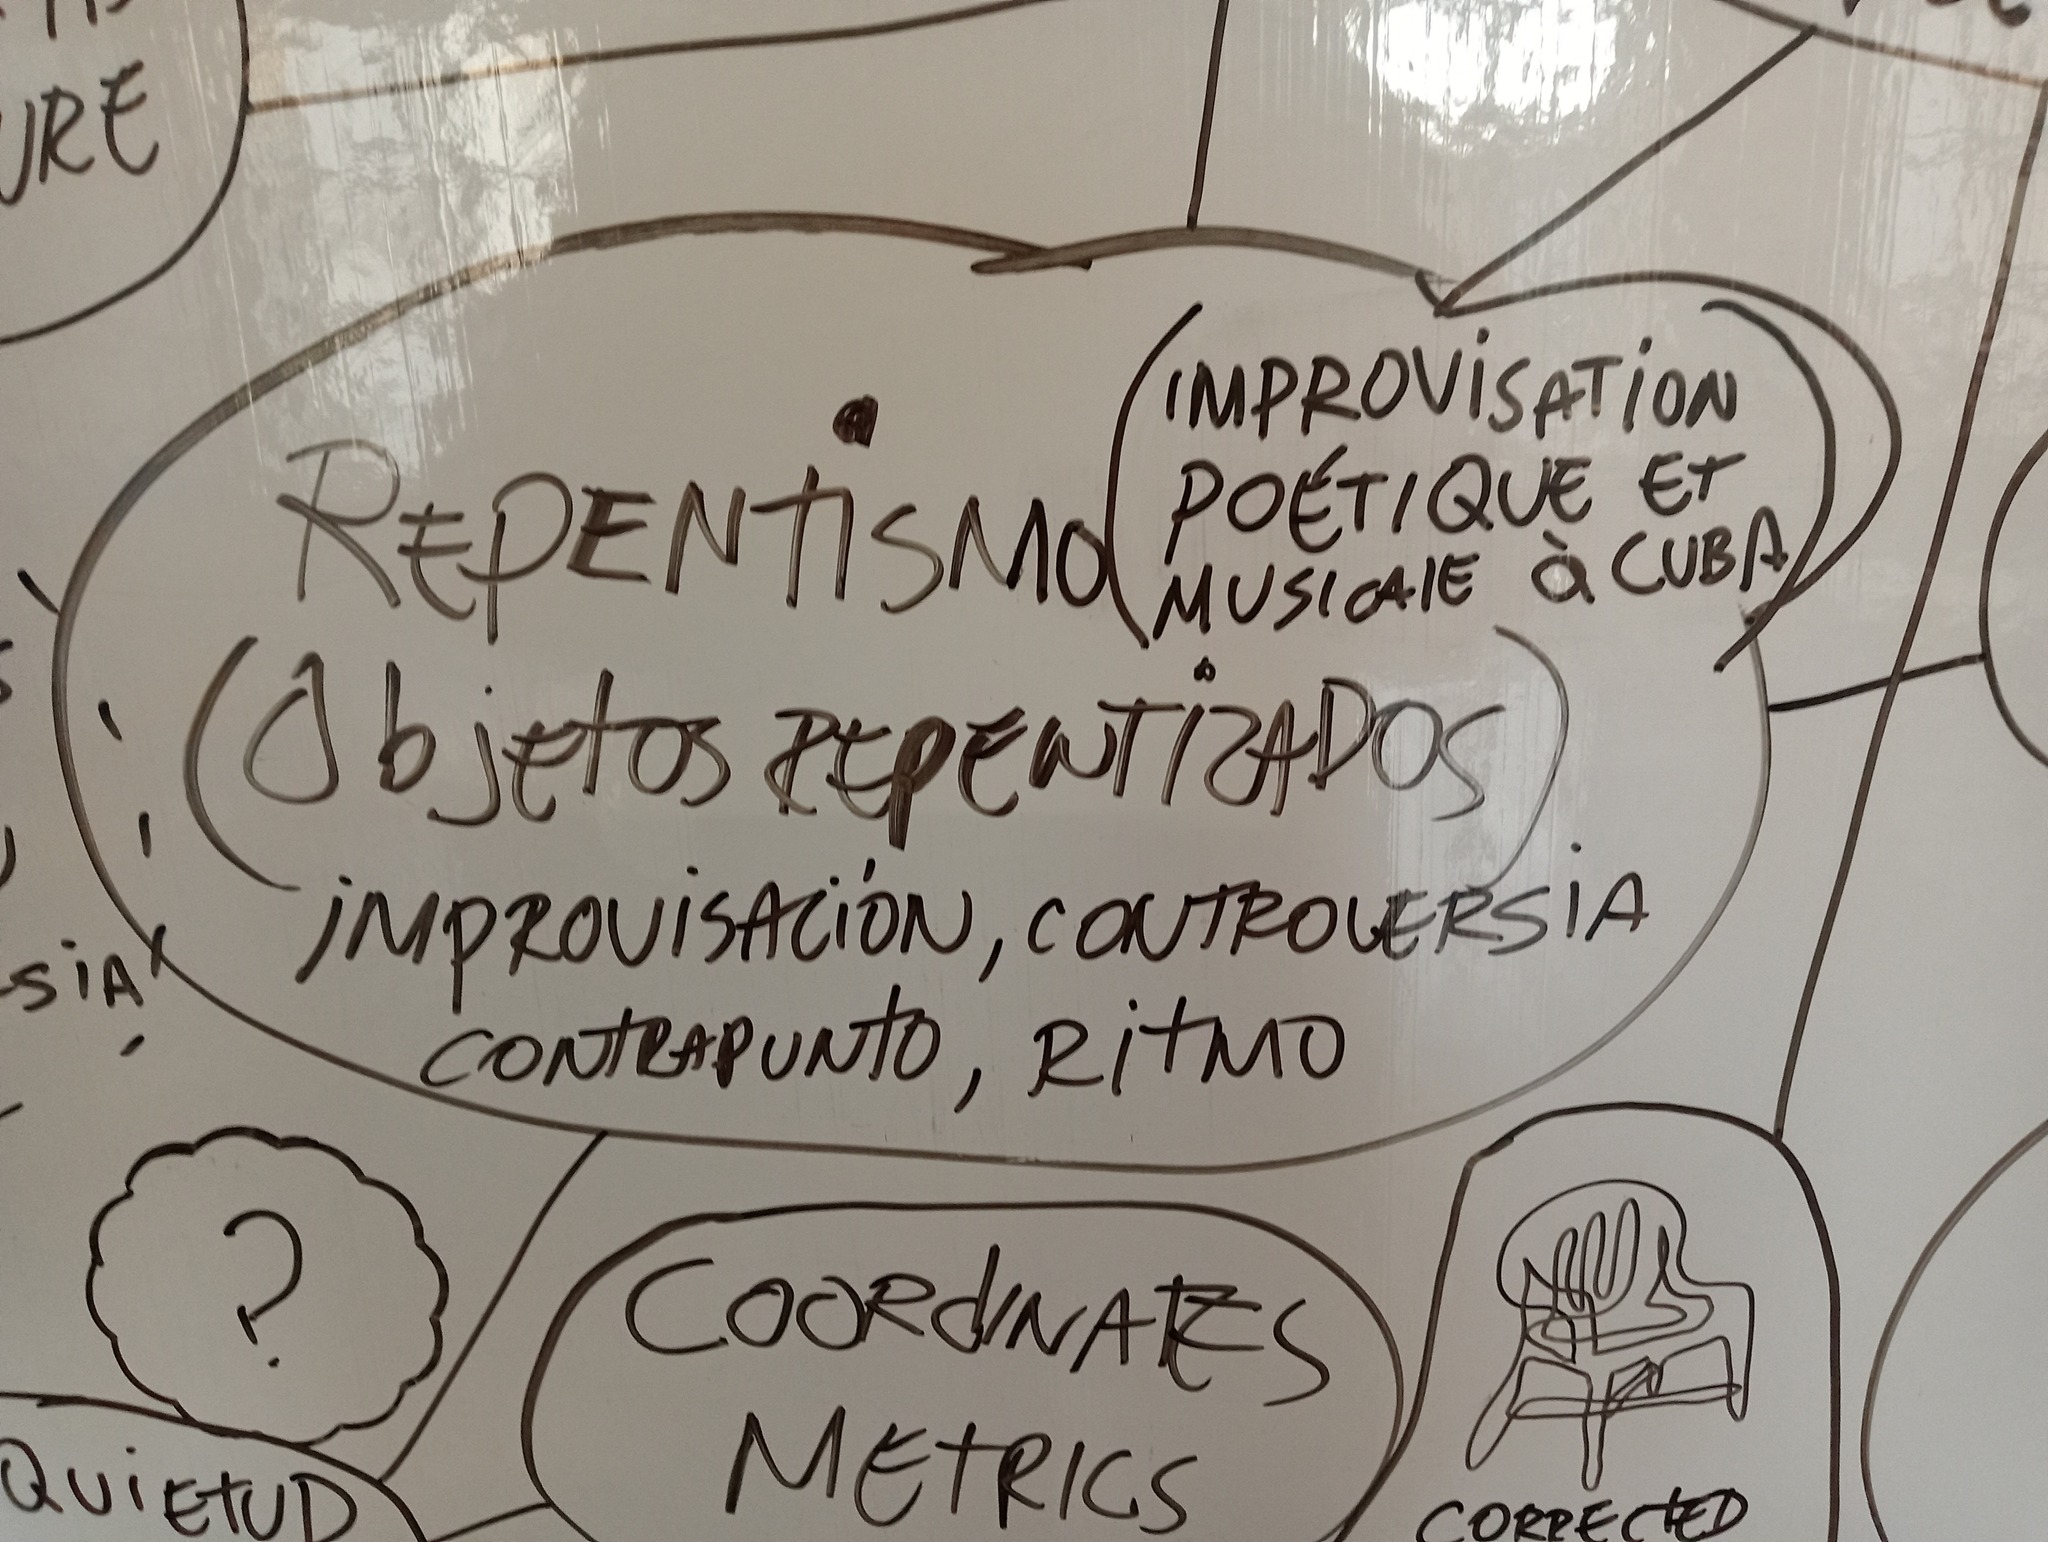 URE
REPENTISMO
(IMPROVISATION
POÉTIQUE ET
MUSICALE à CUBA)
(Objetos REPENTIZADOS)
iMPROVISACIÓN, CONTROVERSIA
CONTRAPUNTO, RITMO
SIA
?
COORDINATES
METRICS
QUIETUD
CORRECTED